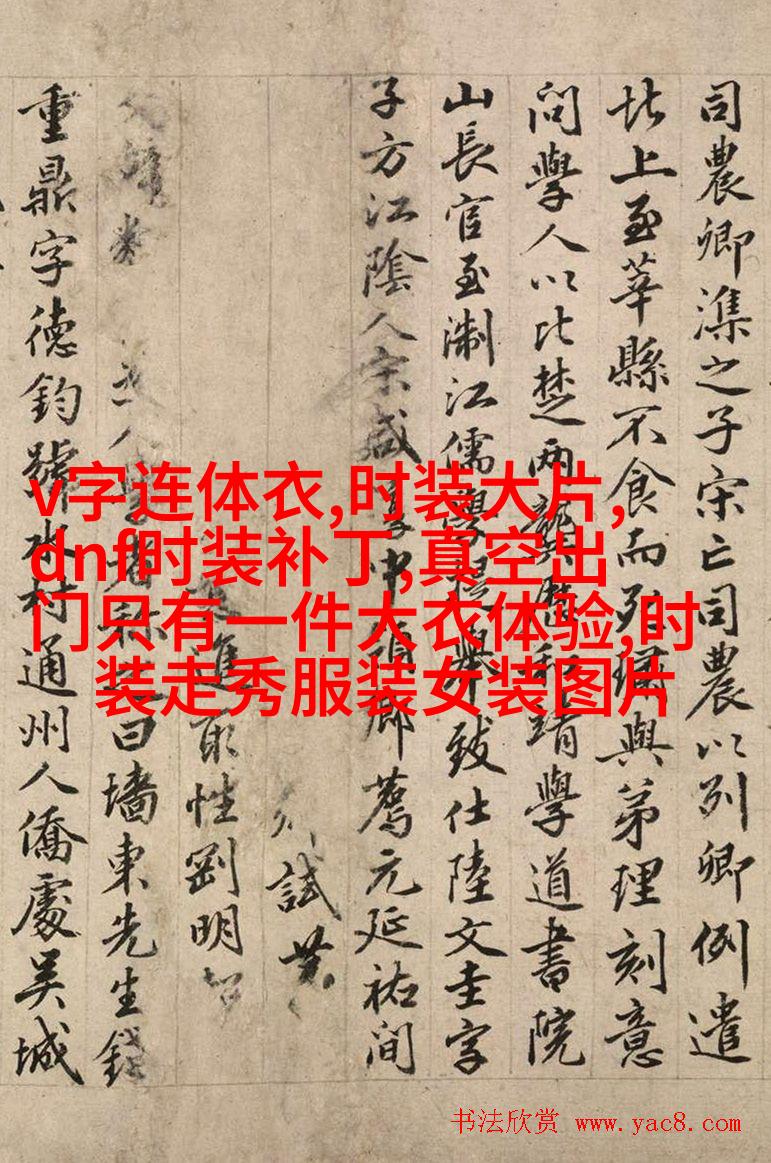 司農卿潗之子宋亡司農以列卿例遣
北上至莘縣不食而死與弟理刻意
問學人以比楚两龔和靖學道書院
山長官至淛江儒學提舉致仕陸文圭字
子方江陰人宋咸中領鄉薦元延祐間
試
進取性剛明
人學者稱曰墻東先生錢
重鼎字德鈞號水村通州人僑處吴城
v字连体衣,时装大片,
dnf时装补丁,真空出
门只有一件大衣体验,时
装走秀服装女装图片
书法欣赏 www.yac8.com